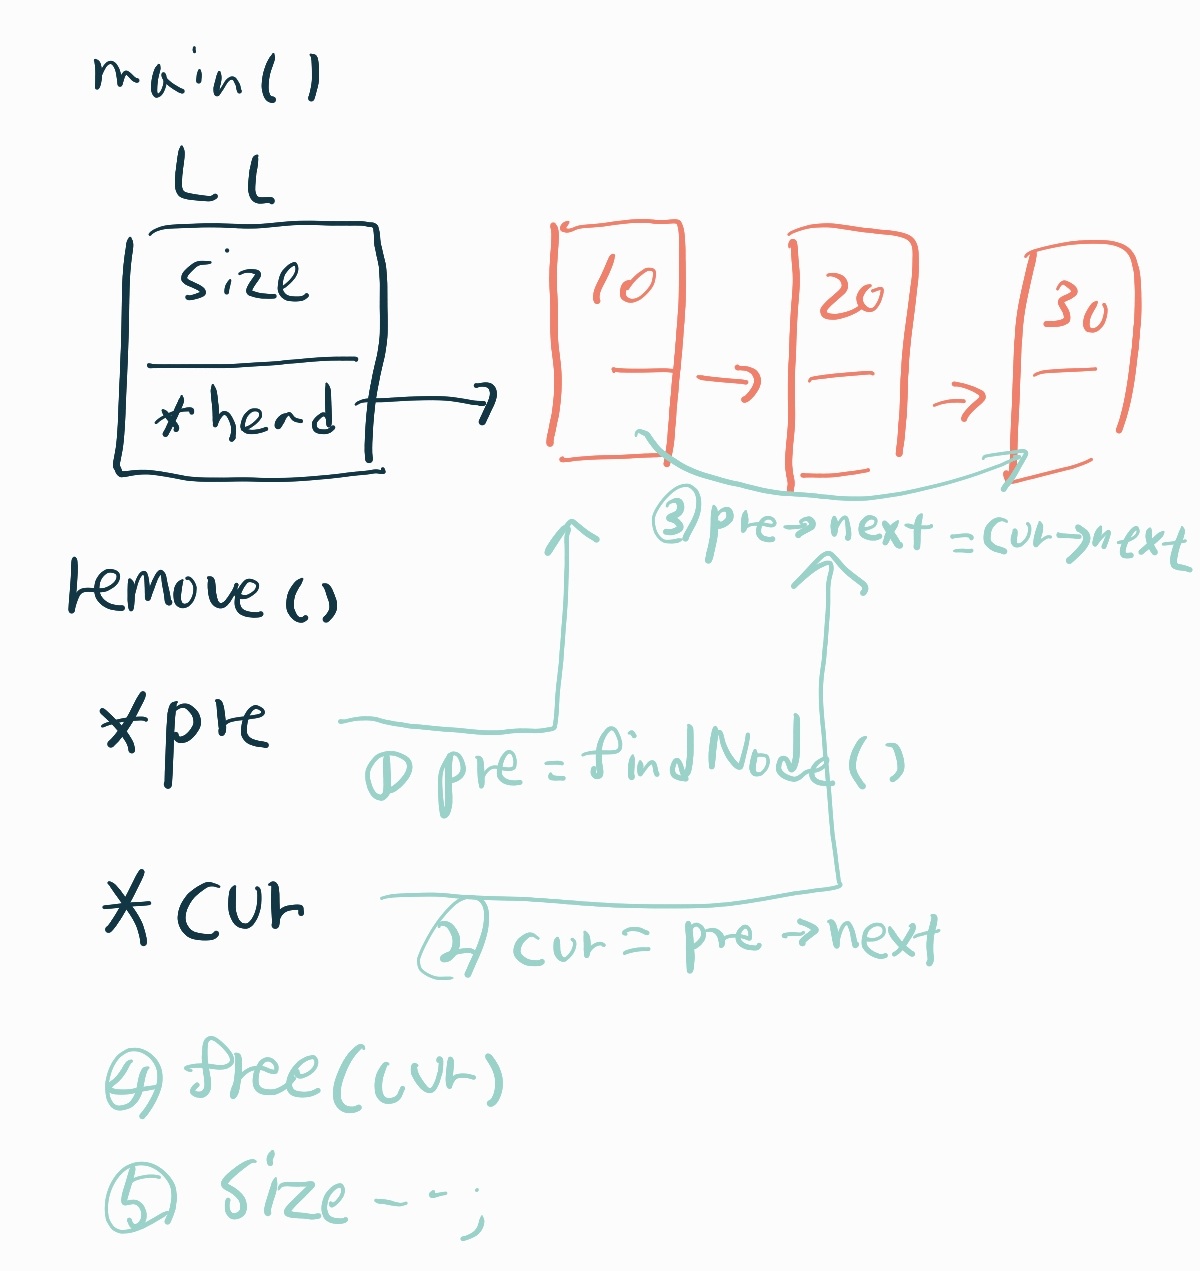 main()
LL
size
*head
10
20
30
③pre→next=cur→next
remove()
*pre
①pre=findNode()
*cur
②cur=pre→next
④free(cur)
⑤size--;